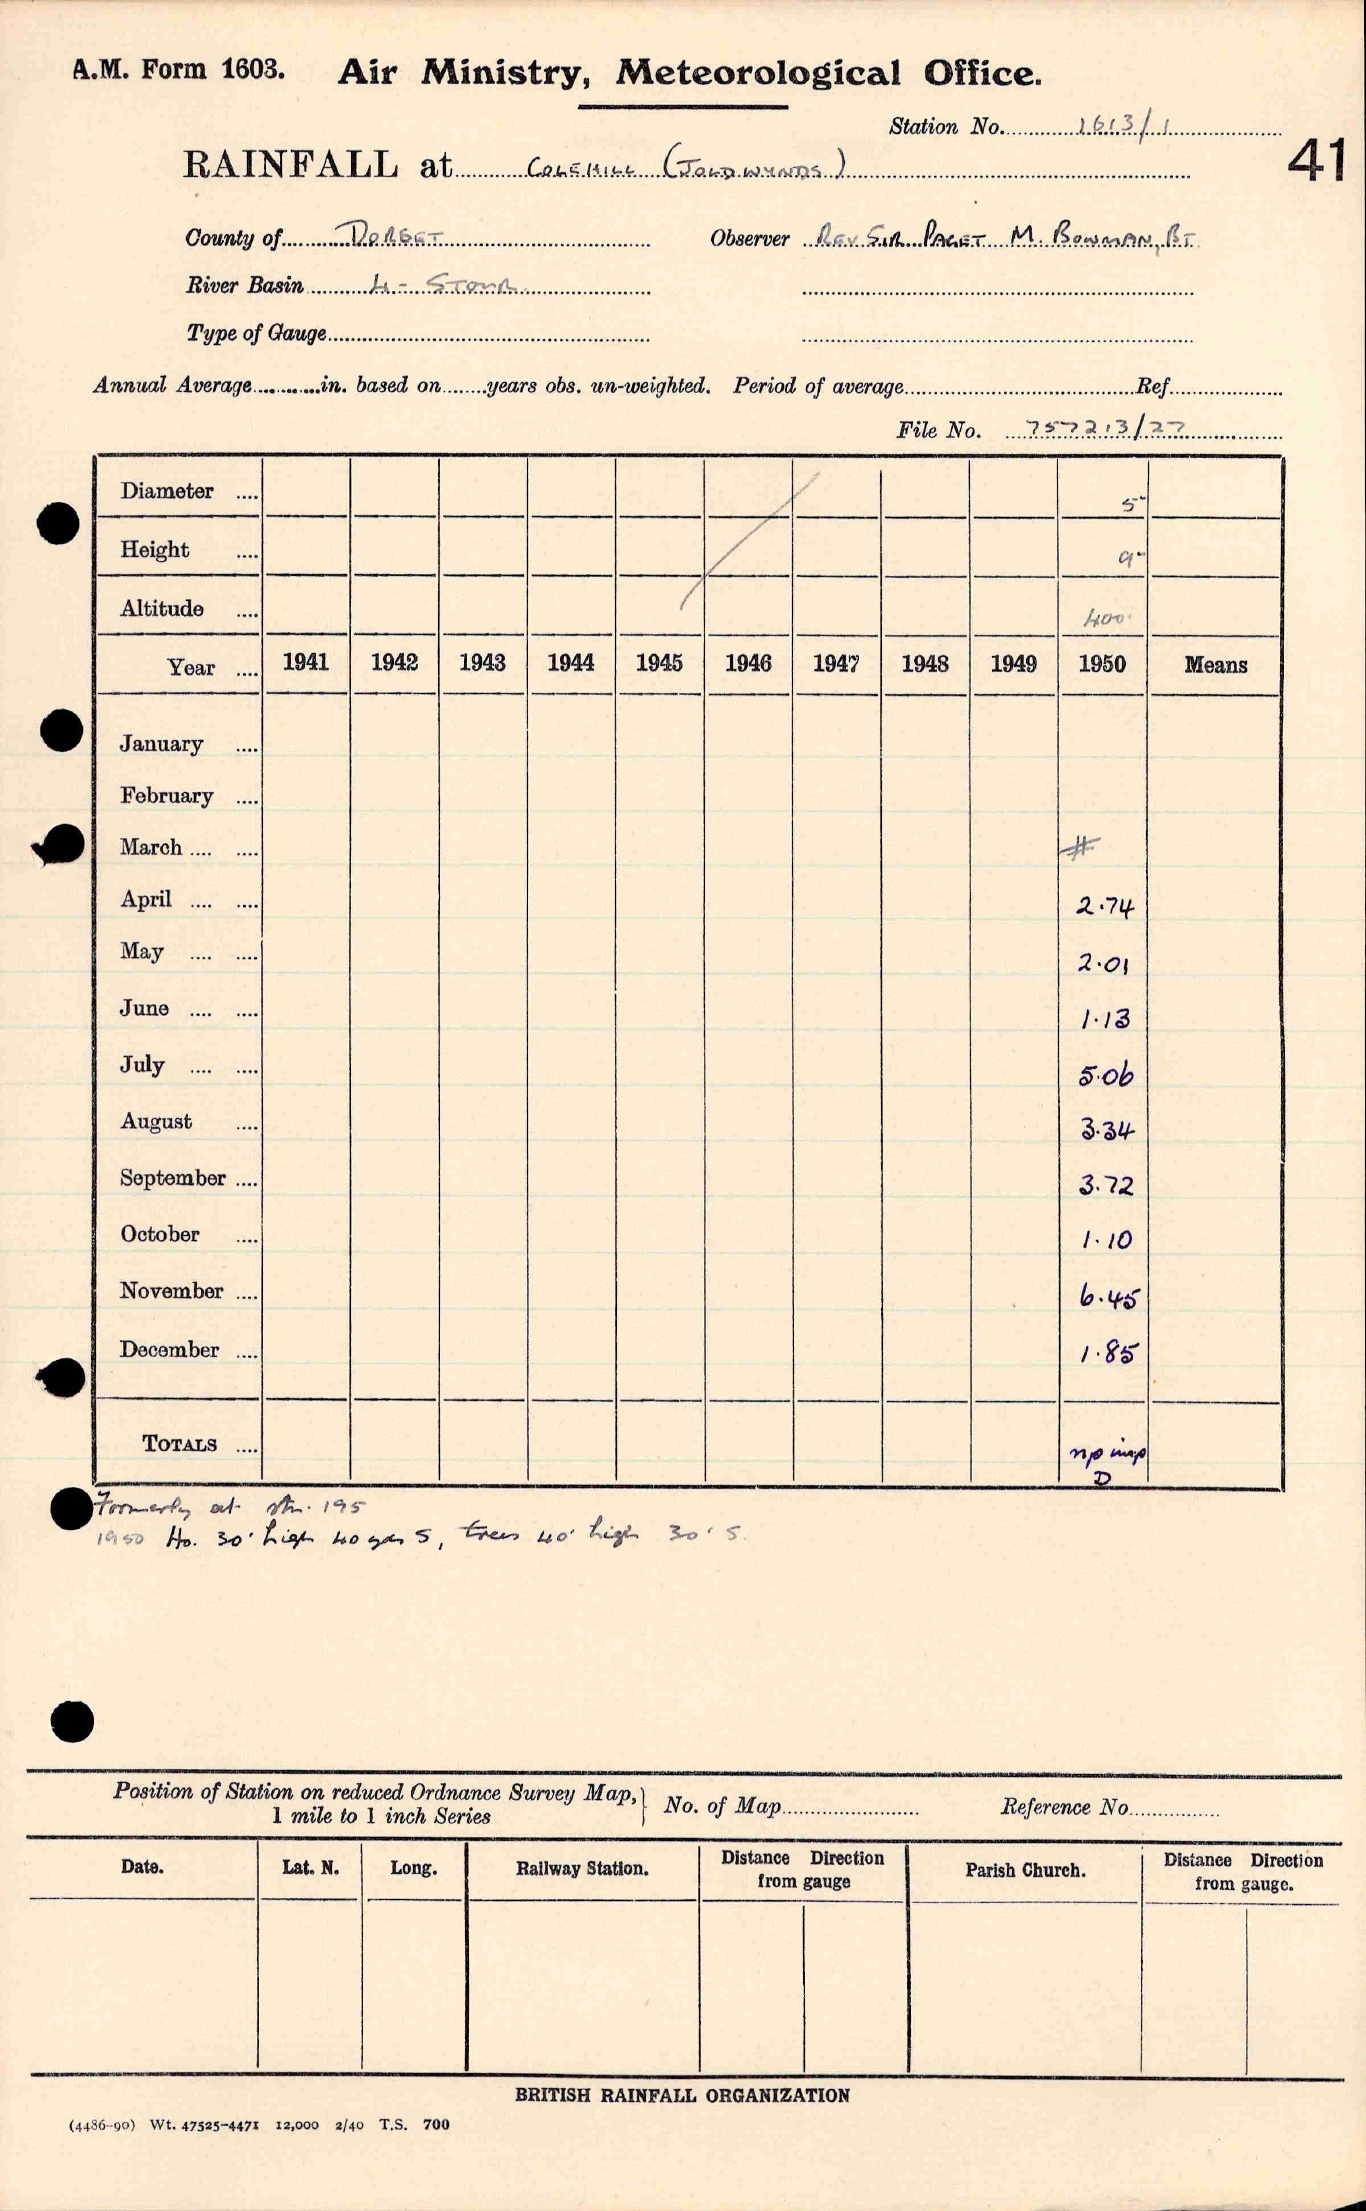 A.M. Form 1603. Air Ministry, Meteorological Office.
Station No. 1613/1
41
RAINFALL at COLEHILL (JOLDWYNDS)
County of DORSET Observer REV. SIR PAGET M. BOWMAN, BT.
River Basin 4 - STOUR
Type of Gauge
Annual Average in. based on years obs. un-weighted. Period of average Ref.
File No. 757213/27
Diameter 5"
Height 9"
Altitude 400
Year 1941 1942 1943 1944 1945 1946 1947 1948 1949 1950 Means
January
February
March #
April 2.74
May 2.01
June 1.13
July 5.06
August 3.34
September 3.72
October 1.10
November 6.45
December 1.85
TOTALS np imp
D
Formerly at stn. 195
1950 Ho. 30' high 40 yds S, trees 40' high 30' S.
Position of Station on reduced Ordnance Survey Map, No. of Map Reference No.
1 mile to 1 inch Series
Date. Lat. N. Long. Railway Station. Distance Direction from gauge Parish Church. Distance Direction from gauge.
BRITISH RAINFALL ORGANIZATION
(4486-90) Wt. 47525-4471 12,000 2/40 T.S. 700